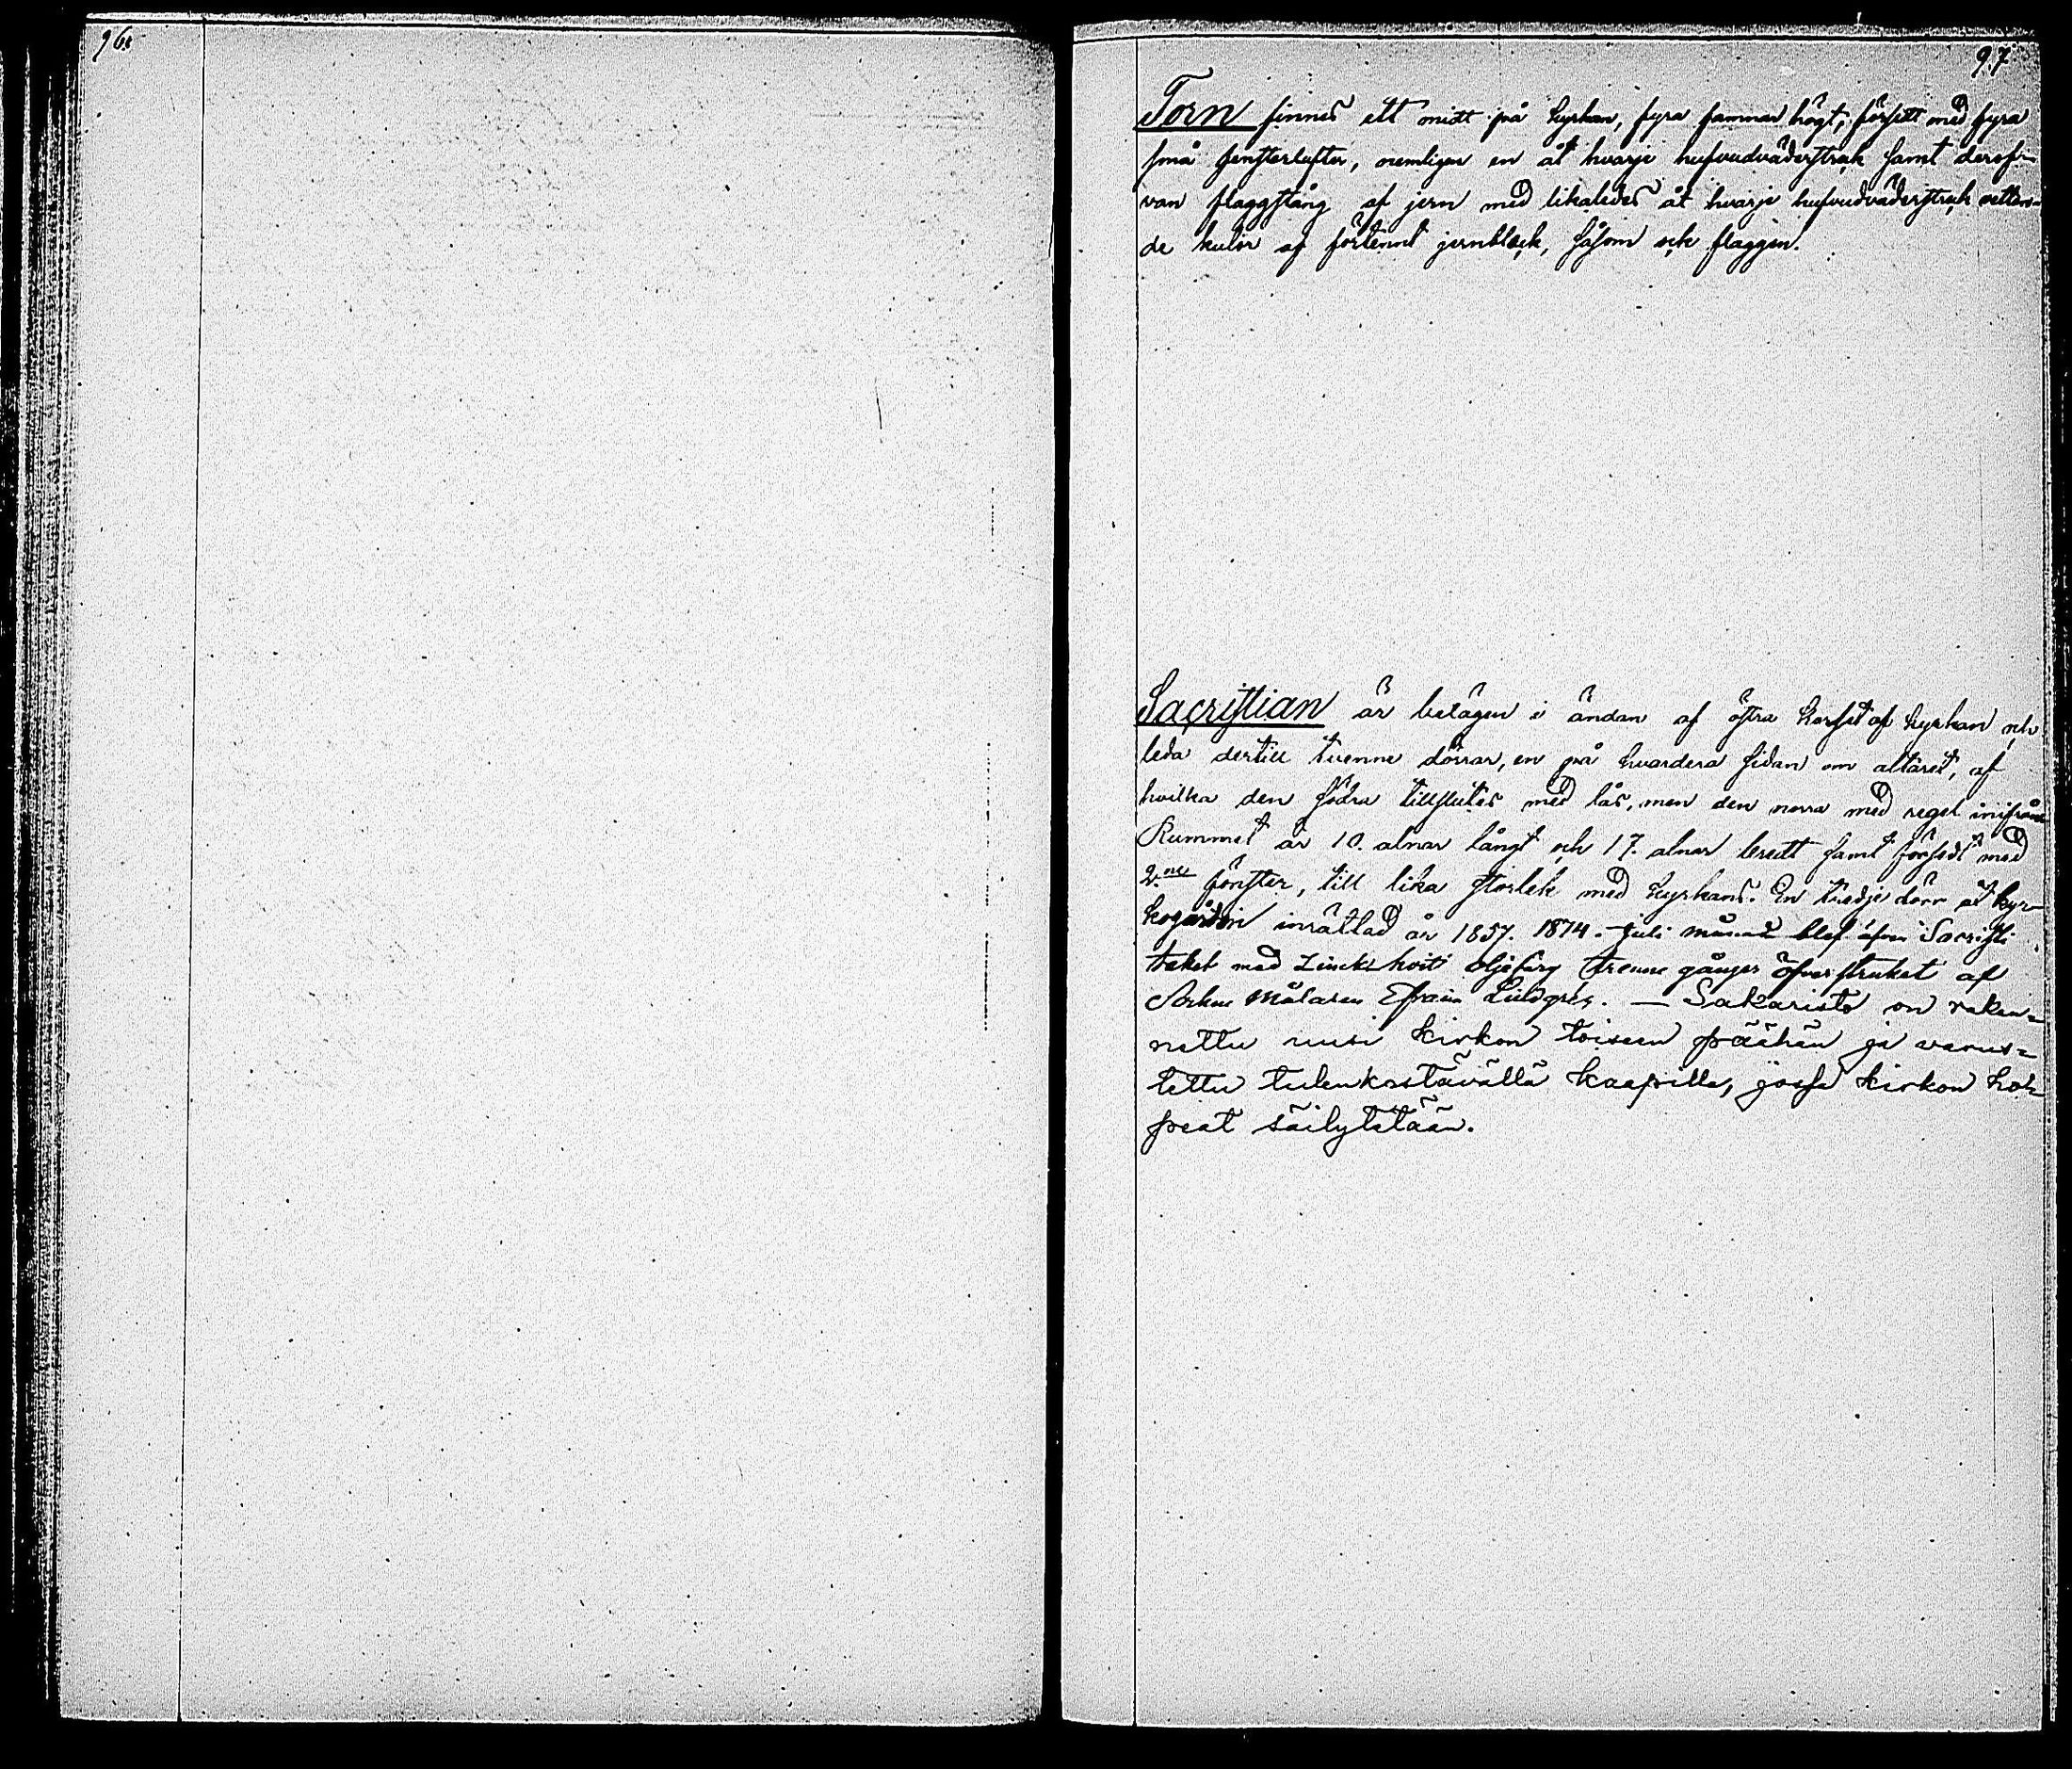 96.
97
Torn finnes ett midt på kyrkan, fyra famnar högt, försett med fyra
små fensterlufter, nemligen en åt hvarje hufvudväderstrek samt derof-
van flaggstång af jern med likaledes åt hvarje hufvudväderstrek
de kulor af förtennt jernbleck, såsom ock flaggan.
Sacristian är belägen i ändan af östra korset af kyrkan och
leda dertill tvenne dörrar, en på hvardera sidan om altaret, af
hvilka den södra tillslutes med lås, men den norra med regel inifrån
Rummet är 10. alnar långt och 17. alnar bredt samt försedt med
2.ne fönster, till lika storlek med kyrkans. En tredje dörr åt kyr-
kogården inrättad år 1857. 1874. Juli månad blef äfven Sacristi
taket med Zinck hvitt oljefärg trenne gånger öfverstruket af
Målaren Efraim Lindgrén. — Sakaristo on raken-
nettu uusi kirkon toiseen päähän ja varus-
tettu tulenkestävällä kaapilla, jossa kirkon ho-
peat säilytetään.